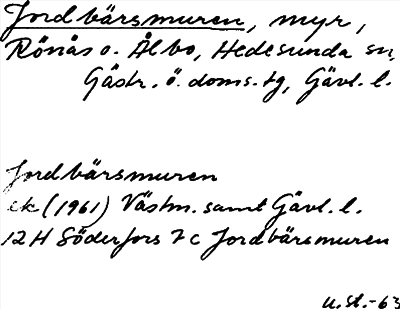 Jordbärsmuren, myr,
Rönås o. Ålbo, Hedesunda sn,
Gästr. ö. doms. tg, Gävl. l.
Jordbärsmuren
ek (1961) Västm. samt Gävl. l.
12 H Söderfors 7 c Jordbärsmuren
u.st.-63